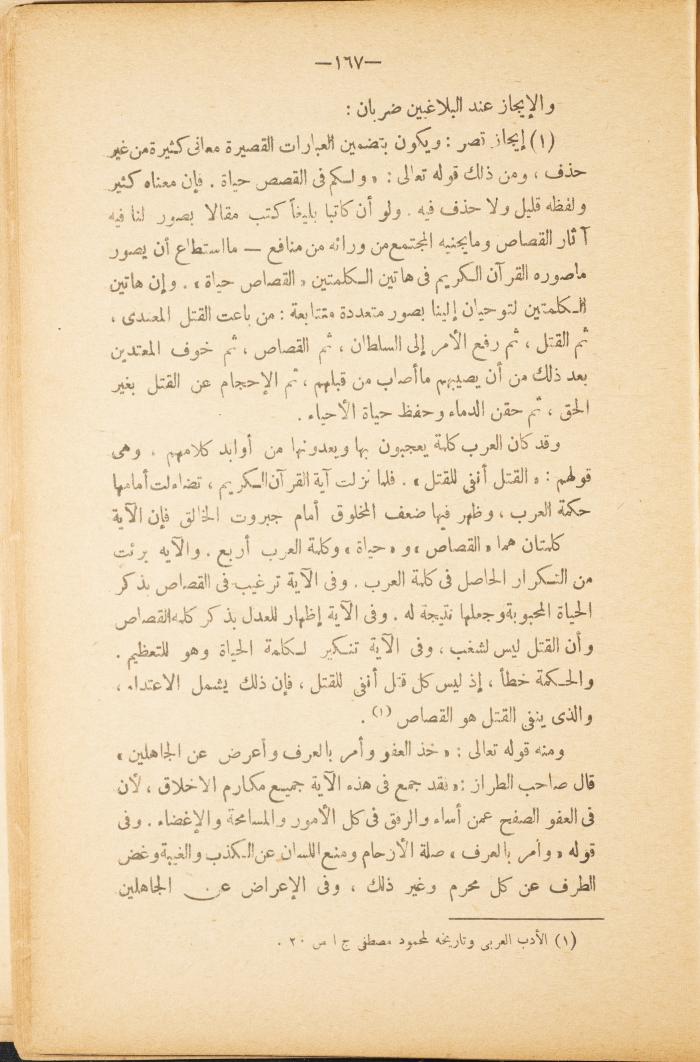 —١٦٧—
والإيجاز عند البلاغيين ضربان :
(١) إيجاز قصر : ويكون بتضمين العبارات القصيرة معانى كثيرة من غير
حذف ، ومن ذلك قوله تعالى : « ولكم فى القصص حياة . فإن معناه كثير
ولفظه قليل ولا حذف فيه . ولو أن كاتبا بليغاً كتب مقالا بصور لنا فيه
آثار القصاص وما يجنيه المجتمع من ورائه من منافع — ما استطاع أن يصور
ماصوره القرآن الكريم فى هاتين الكلمتين « القصاص حياة » . وإن هاتين
الكلمتين لتوحيان إلينا بصور متعددة متتابعة : من باعث القتل المعتدى ،
ثم القتل ، ثم رفع الأمر إلى السلطان ، ثم القصاص ، ثم خوف المعتدين
بعد ذلك من أن يصيبهم ما أصاب من قبلهم ، ثم الإحجام عن القتل بغير
الحق ، ثم حقن الدماء وحفظ حياة الأحياء .
وقد كان العرب كلمة يعجبون بها ويعدونها من أوابد كلامهم . وهى
قولهم : « القتل أنفى للقتل » . فلما نزلت آية القرآن الكريم ، تضاءلت أمامها
حكمة العرب ، وظهر فيها ضعف المخلوق أمام جبروت الخالق فإن الآية
كلمتان هما « القصاص » و « حياة » وكلمة العرب أربع . والآيه برئت
من التكرار الحاصل فى كلمة العرب . وفى الآية ترغيب فى القصاص بذكر
الحياة المحبوبة وجعلها نتيجة له . وفى الآية إظهار للعدل بذكر كلمه القصاص
وأن القتل ليس لشغب ، وفى الآية تنكير لكلمة الحياة وهو للتعظيم .
والحكمة خطأ ، إذ ليس كل قتل أنفى للقتل ، فإن ذلك يشمل الاعتداء ،
والذى ينفى القتل هو القصاص (١) .
ومنه قوله تعالى : « خذ العفو وأمر بالعرف وأعرض عن الجاهلين »
قال صاحب الطراز : « فقد جمع فى هذه الآية جميع مكارم الاخلاق ، لأن
فى العفو الصفح عمن أساء والرفق فى كل الأمور والمسامحة والإغضاء . وفى
قوله « وأمر بالعرف » صلة الأرحام ومنع اللسان عن الكذب والغيبة وغض
الطرف عن كل محرم وغير ذلك ، وفى الإعراض عن الجاهلين
(١) الأدب العربى وتاريخه لمحمود مصطفى ج ١ ص ٢٠ .